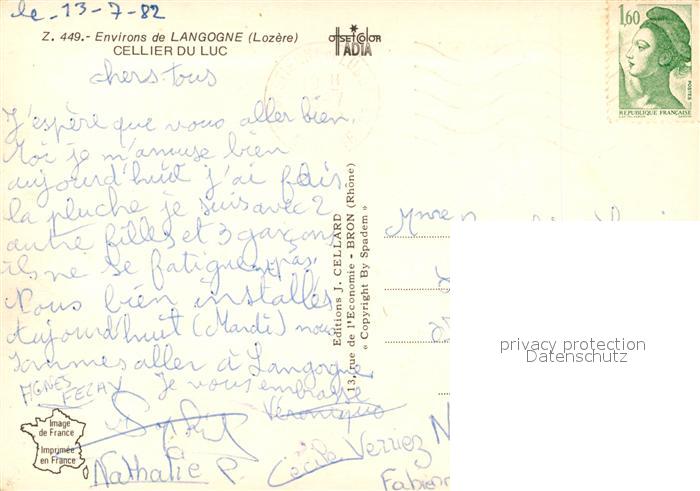 le 13-7-82
Z. 449.- Environs de LANGOGNE (Lozère)
CELLIER DU LUC
OFFSET COLOR
IADIA
1,60
POSTES
REPUBLIQUE FRANÇAISE
chers tous
J'espère que vous aller bien.
Moi je m'amuse bien
aujourd'huit j'ai fais
la pluche je suis avec 2
autre filles et 3 garçons
ils ne se fatigue pas.
Nous bien installés
Aujourd'huit (Mardi) nous
sommes aller à Langogne
Je vous embrasse
AGNES
FEZAY
Veronique
Sophie
Nathalie P.
Cécile Verriez
Fabien
Image
de France
Imprimée
en France
Editions J. CELLARD
13, rue de l'Economie - BRON (Rhône)
« Copyright By Spadem »
Mme
privacy protection
Datenschutz